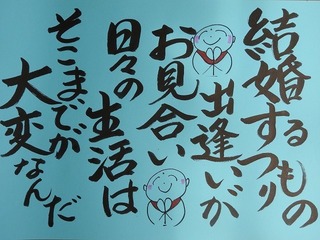 結婚するもの
つり
出逢いが
お見合い
日々の
生活は
そこまでが
大変なんだ